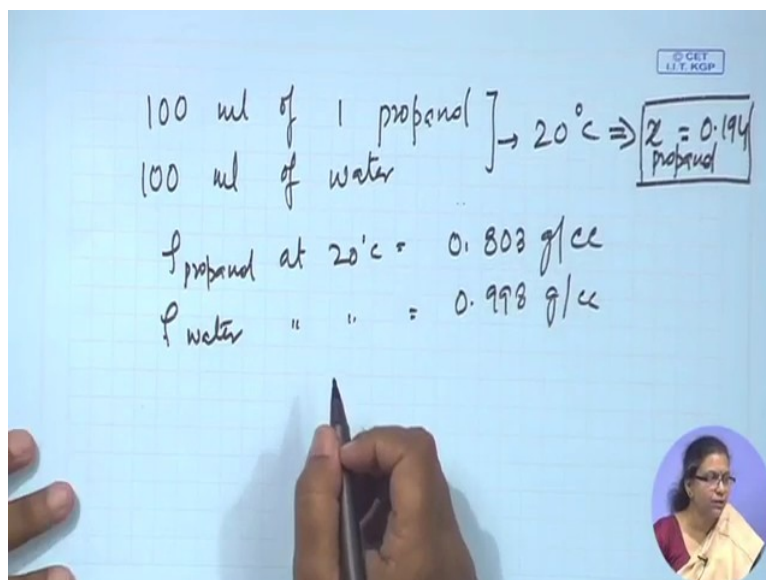 © CET
I.I.T. KGP
100 ml of 1 propanol
100 ml of water
] → 20°C ⇒ x propanol = 0.194
ρ propanol at 20°C = 0.803 g/cc
ρ water " " = 0.998 g/cc